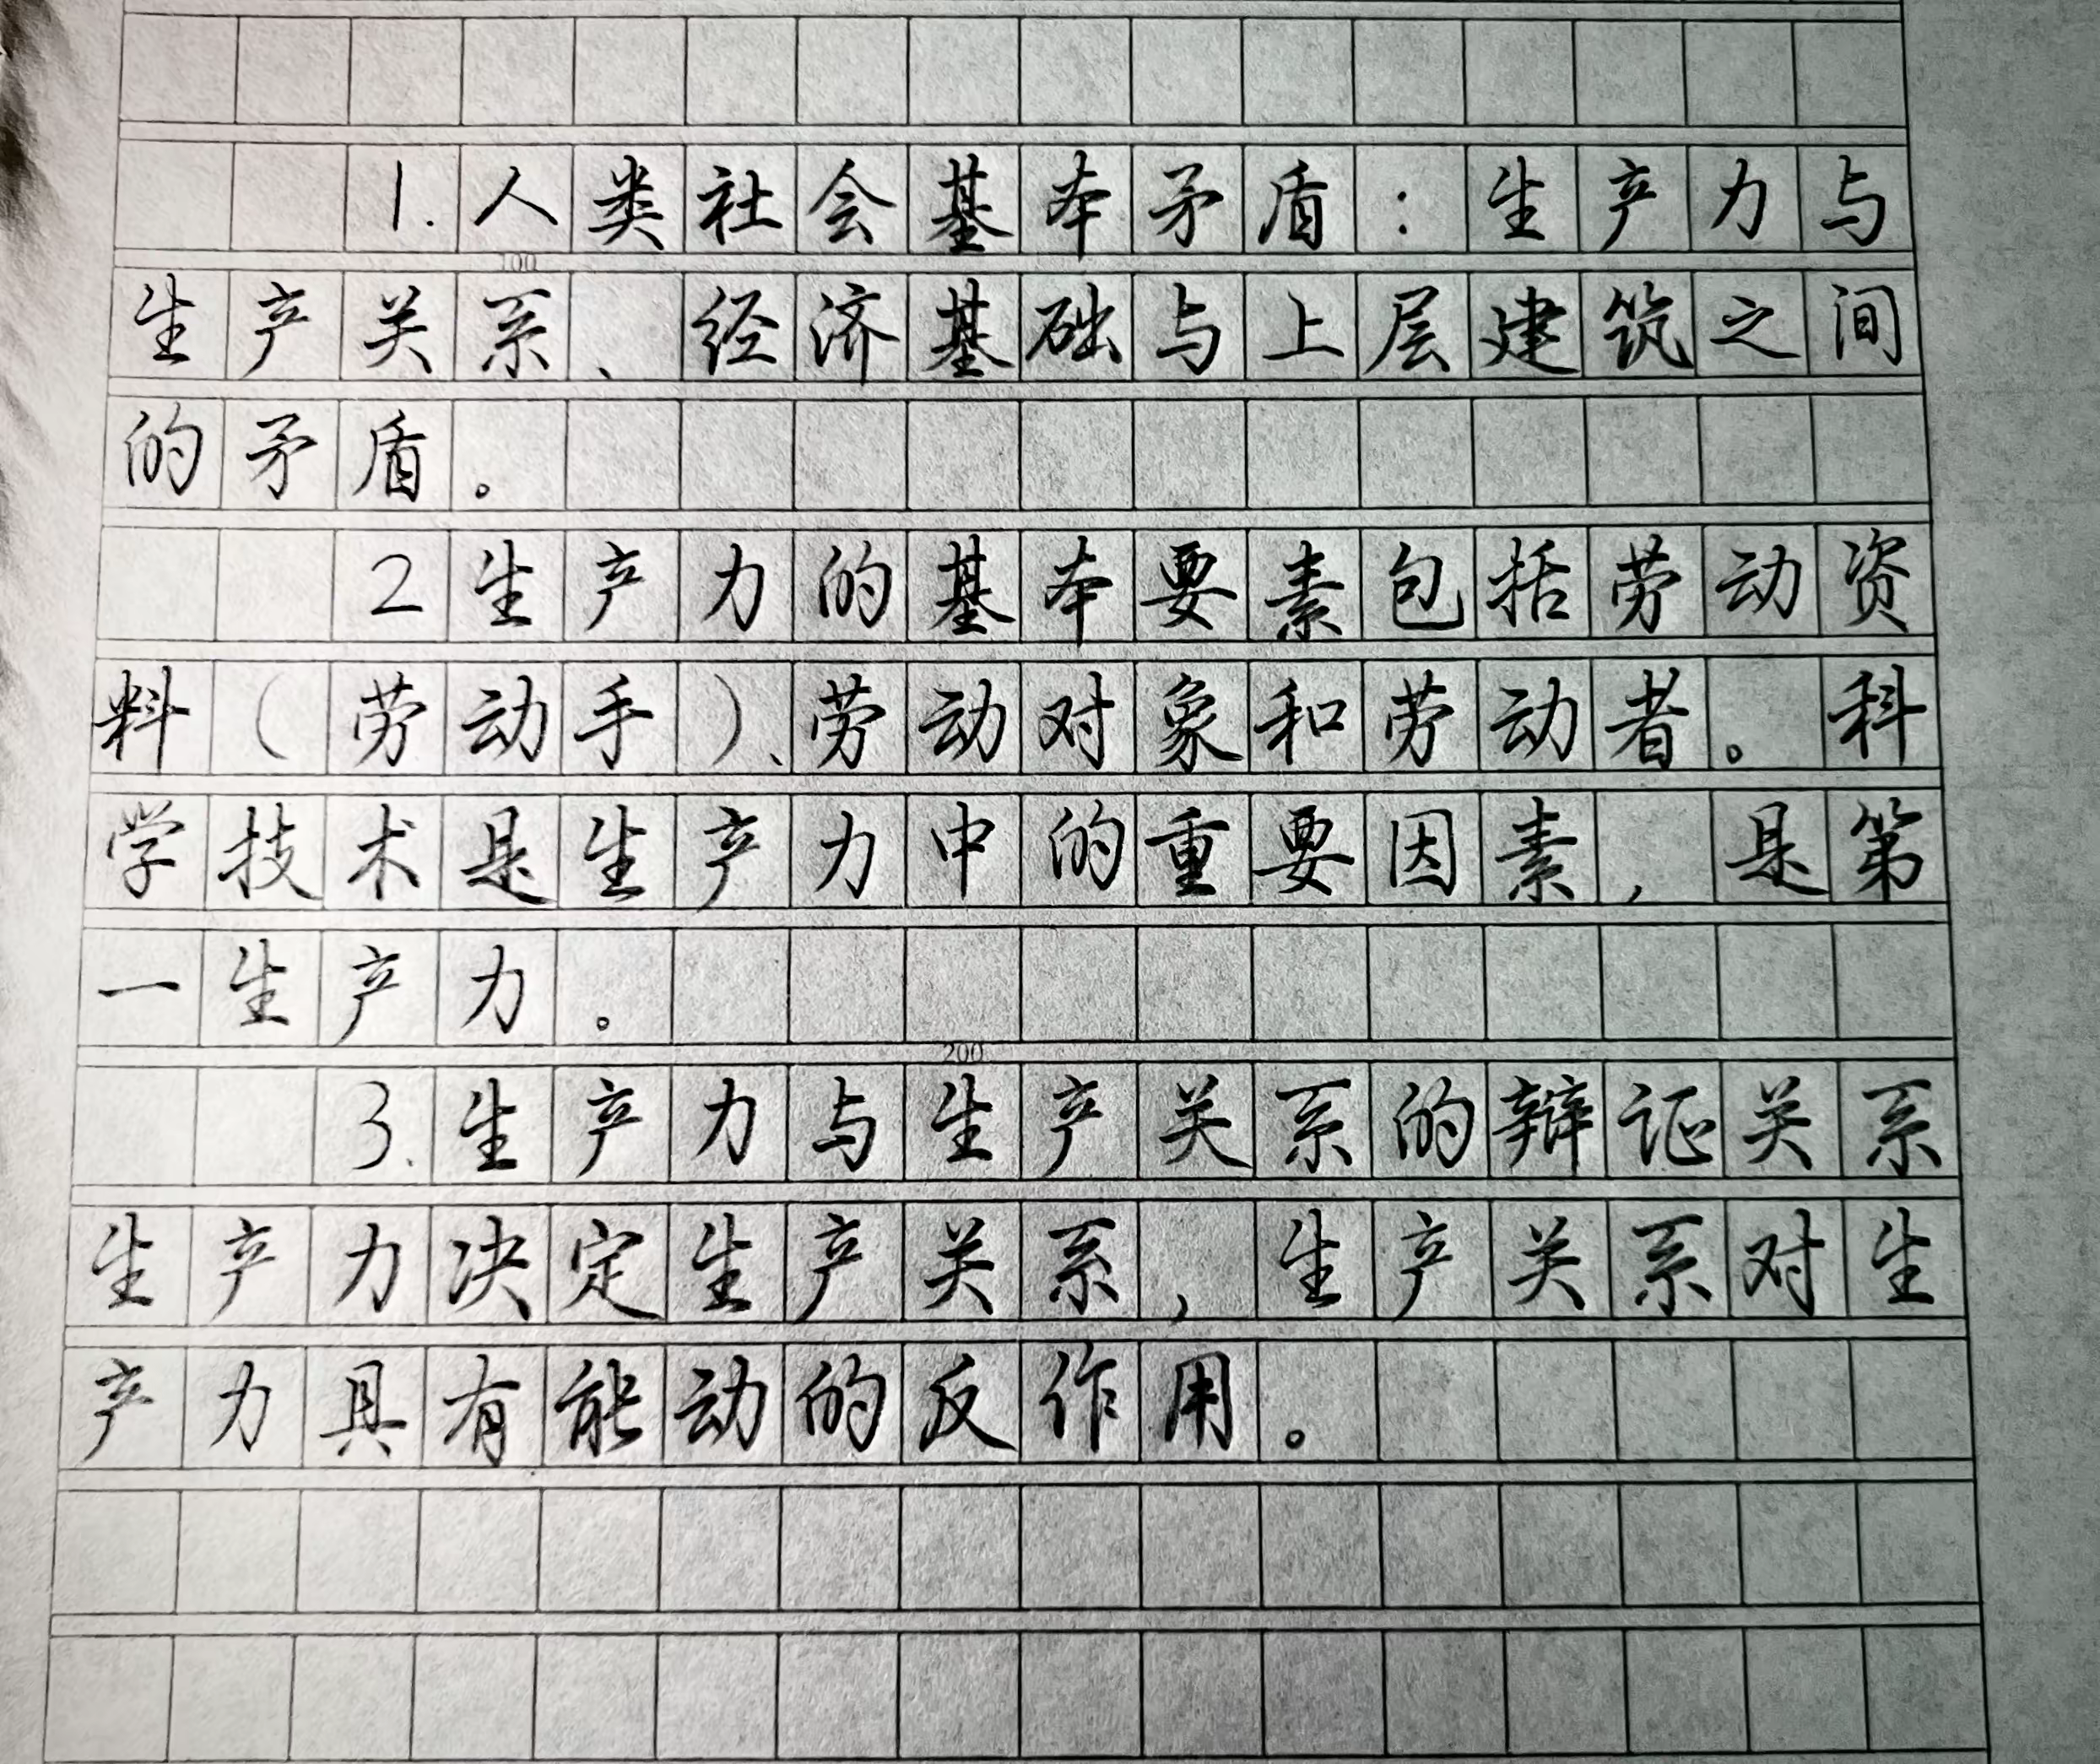 1.人类社会基本矛盾:生产力与
100
生产关系、经济基础与上层建筑之间
的矛盾。
2生产力的基本要素包括劳动资
料(劳动手)、劳动对象和劳动者。科
学技术是生产力中的重要因素,是第
一生产力。
200
3.生产力与生产关系的辩证关系
生产力决定生产关系,生产关系对生
产力具有能动的反作用。